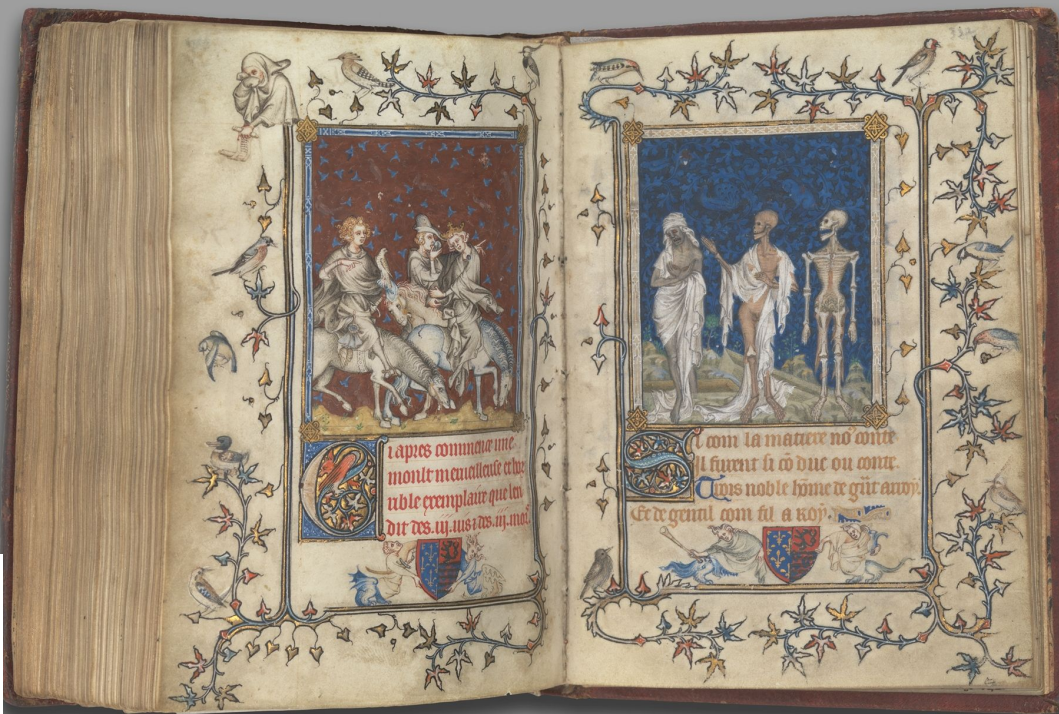 Ci apres commence une
moult merueilleuse et hor
rible exemplaire que len
dit des .iij. uis ⁊ des .iij. mors
Si com la matiere noꝰ conte
Il furent si cō duc ou conte.
Trois noble hōme de g̃nt arroy.
Et de gentil com fil a Roy.